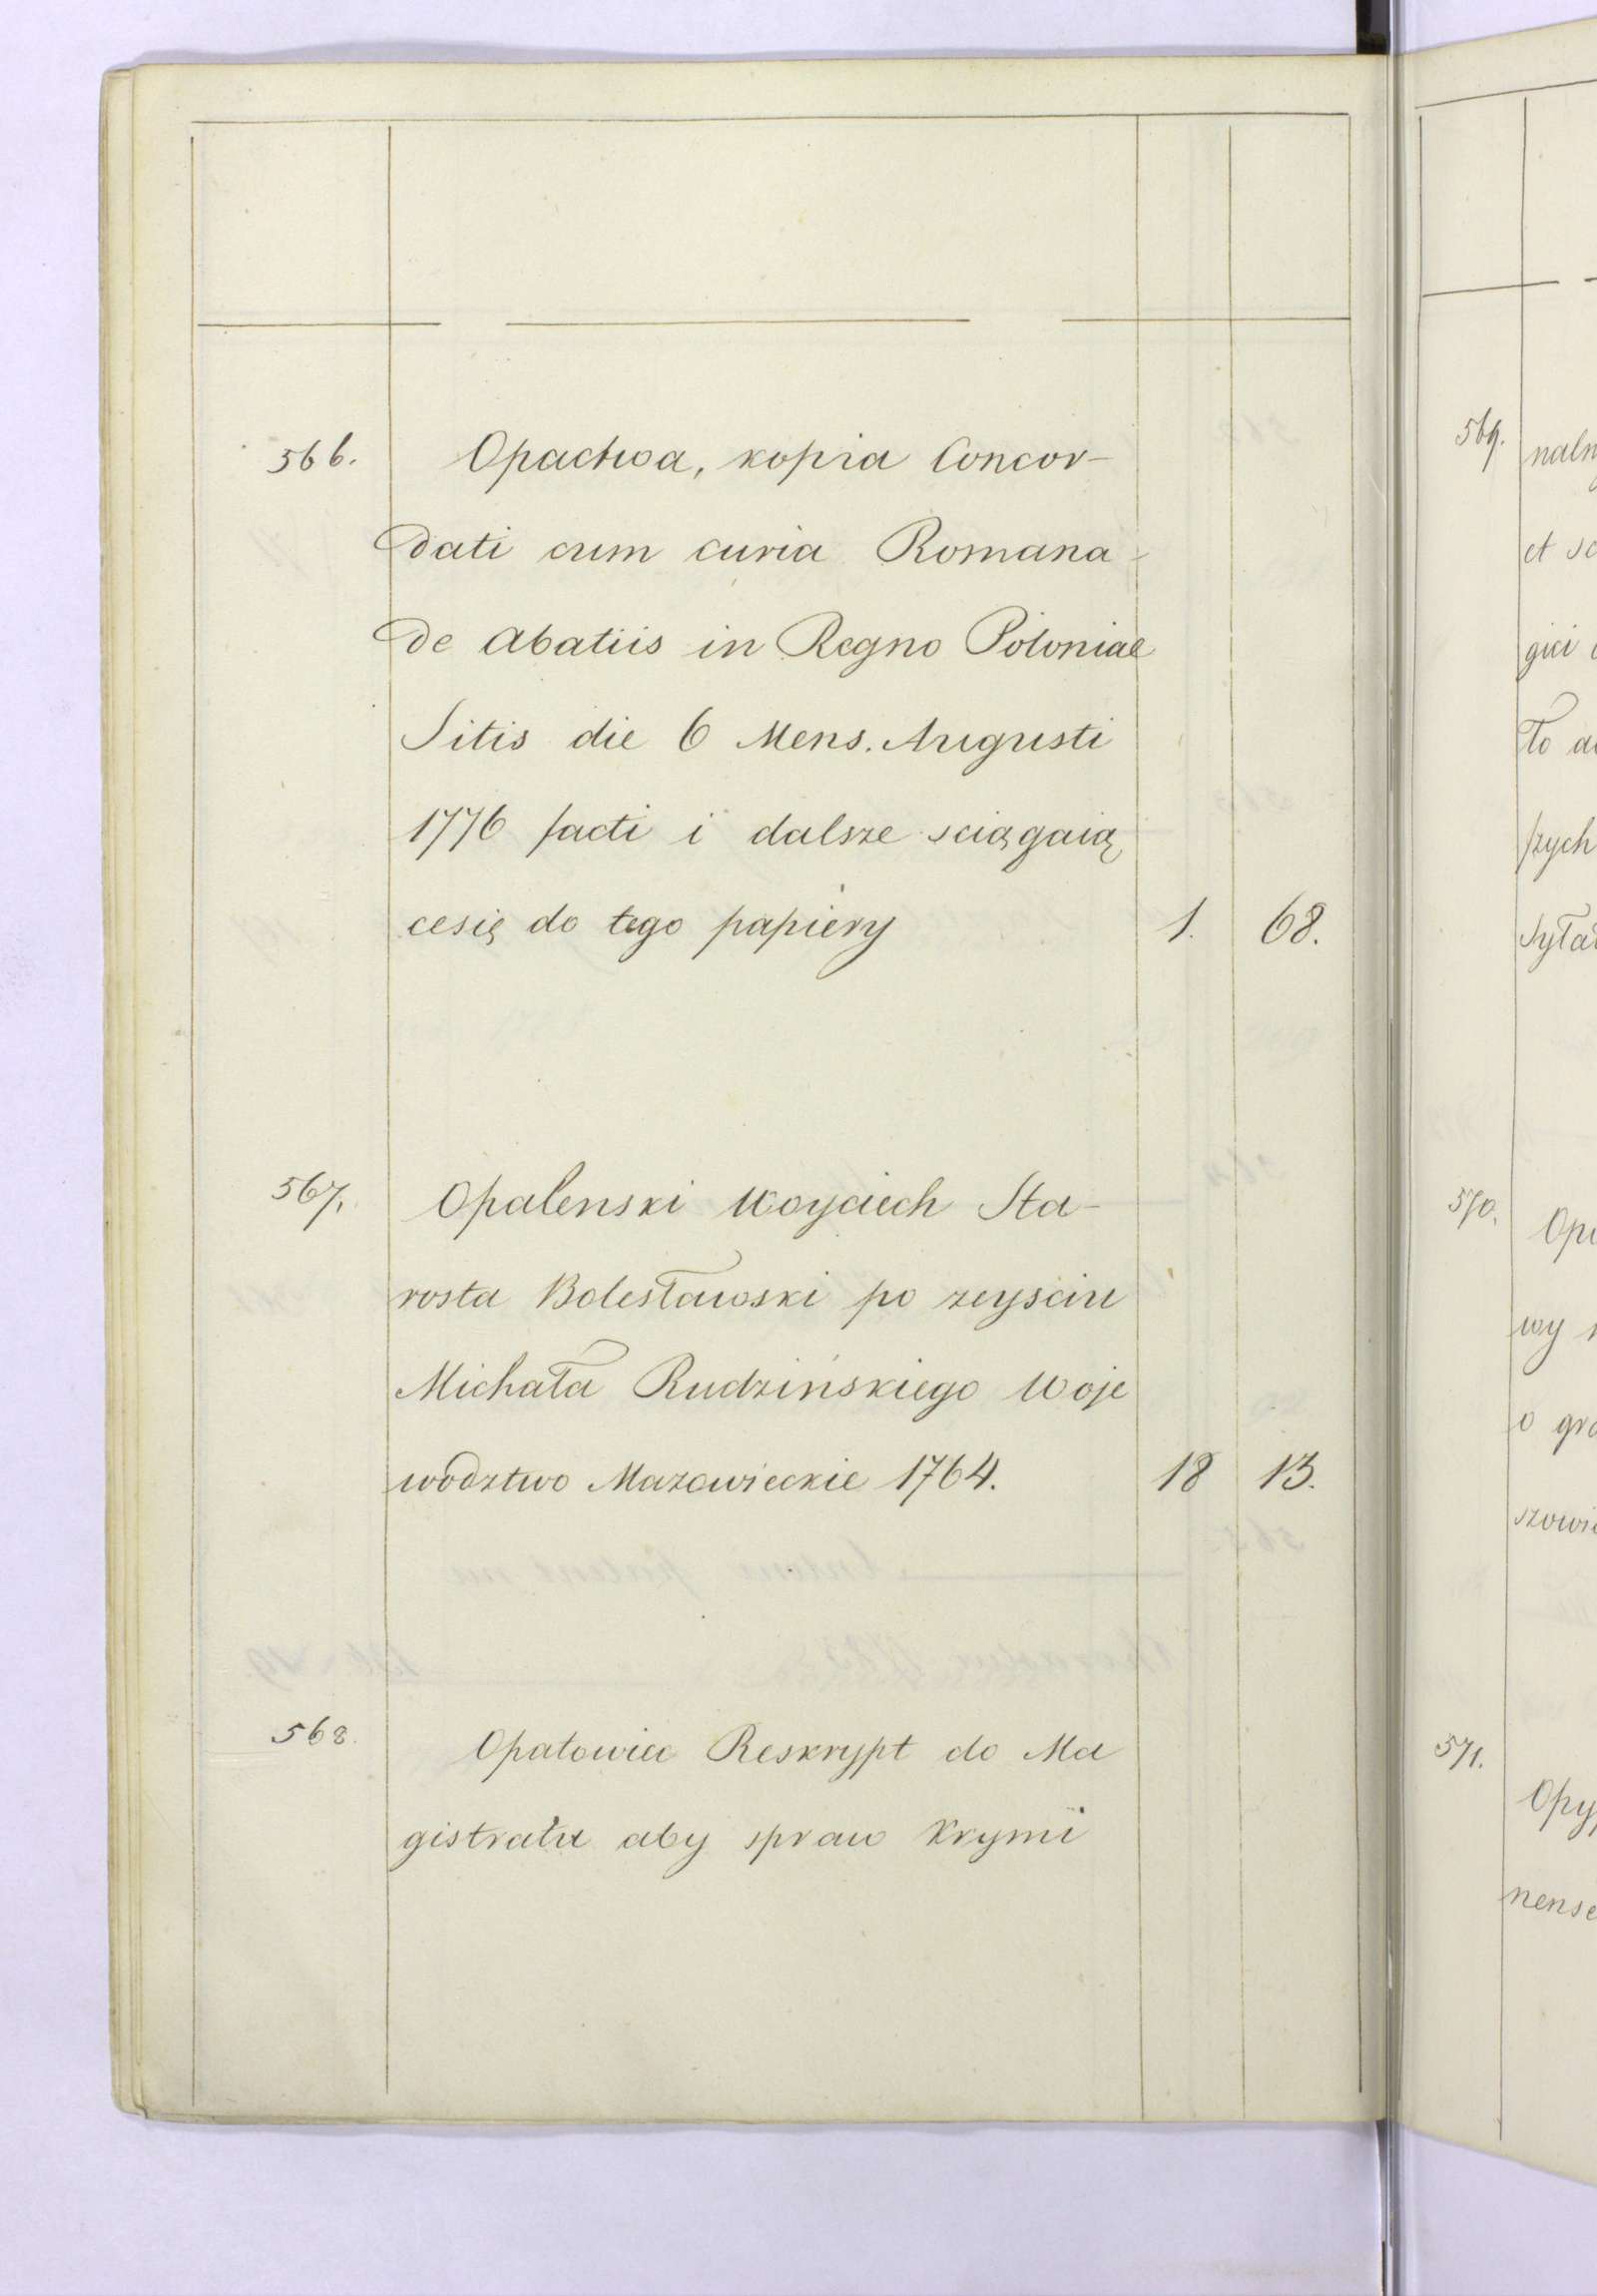 566. Opactwa, kopia Concor-
dati cum curia Romana -
de Abatiis in Regno Poloniae
Sitis die 6 Mens. Augusti
1776 facti i dalsze sciągaią
cesię do tego papiery 1. 68.
567. Opalenski Woyciech Sta-
rosta Bolesławski po zeysciu
Michała Rudzińskiego Woje
wodztwo Mazowieckie 1764. 18 13.
568. Opatowiec Reskrypt do Ma
gistratu aby spraw Krymi
569. naln
et sc
gici
To a
szych
syła
570. Op
wy
o gr
szowi
571. Opy
nense